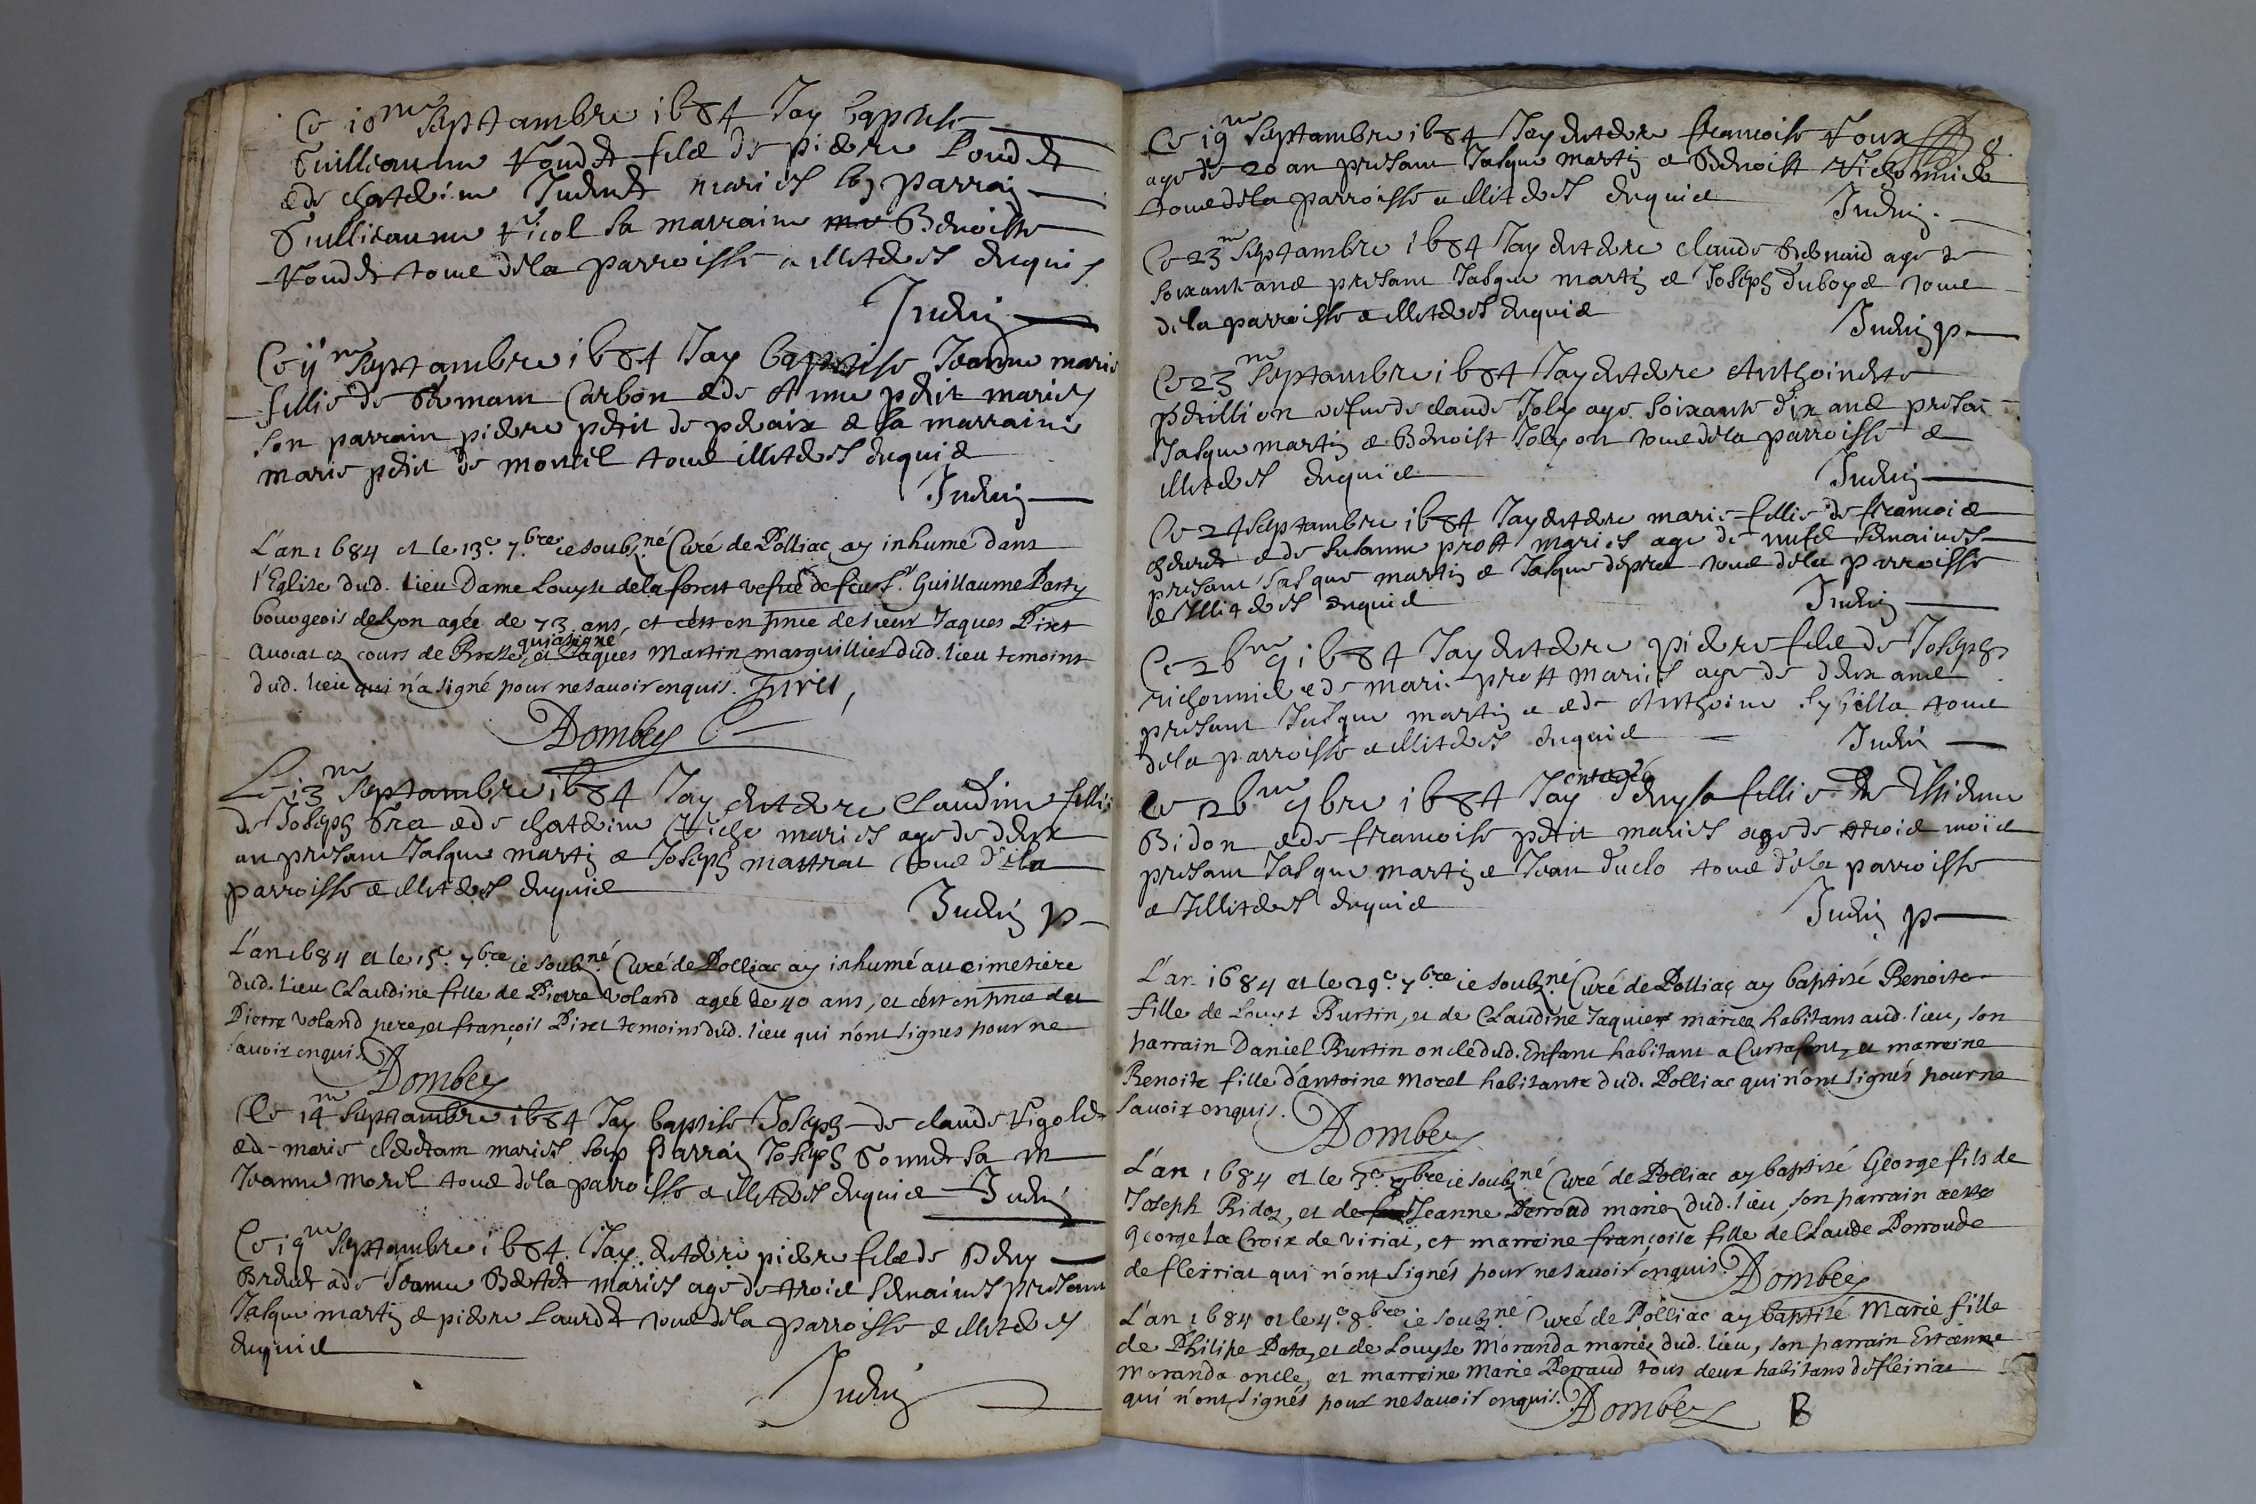 Ce 10me Septambre 1684 Jay baptise
Guilleaume Poudet fild de piedre Poudet
e de chatderine Juderd mariés soy parrain
Guilleaume Vicol sa marraine Bdenoiste
Poudet toud dela parroisse e illitderes enquis
Juderin
Ce 11me Septambre 1684 Jay baptise Jeanne marie
fillie de Romain Carbon e de Anne petit mariés
son parrain piedre petit de peraix e sa marraine
marie petit de montil toud illitderes enquid
Juderin
L'an 1684 et le 13e. 7bre ie soubzné Curé de Polliac ay inhumé dans
l'Eglise dud. lieu Dame Louyse dela forest vefue de feu Sr. Guillaume Party
bourgeois de lyon agée de 73 ans, et c'est en pnce de sieur Jaques Piret
qui a signé
Avocat ez cours de Bresse, et Jaques Martin marguillier dud. lieu temoins
dud. lieu qui n'a signé pour ne savoir enquis. Piret,
Dombey C
Le 13me Septambre 1684 Jay detdere Claudine fillie
de Joseph e de chatderine mariés age de deux
an presant Jasque martin e Joseph mattrat toud dela
parroisse e illitderes enquid
Juderin p
L'an 1684 et le 15e. 7bre ie soubzné Curé de Polliac ay inhumé au cimetiere
dud. lieu Claudine fille de Pierre Voland agée de 40 ans, et c'est en pnce dud
Pierre Voland pere, et françois Piret temoins dud. lieu qui n'ont signés pour ne
savoir enquis Dombey
Ce 14me Septambre 1684 Jay baptise Joseph de claude Vigoled
e de marie mariés soy Parrain Joseph sa m
Jeanne morel toud dela parroisse e illitderes enquid Juderin
Ce 19me Septambre 1684. Jay. detdere piedre fild de Deny
e de Jeanne mariés age de troid semaines presant
Jasque martin e piedre Lauret toud dela parroisse e illitderes
enquid
Juderin
Ce 19me Septambre 1684 Jay detdere francoise 8
age de 20 an presant Jasque martin e Bdenoist
toud dela parroisse e illitderes enquid Juderin.
Ce 23me Septambre 1684 Jay detdere claude age de
soixant and presant Jasque martin e Joseph duboyd toud
dela parroisse e illitderes enquid
Juderin p
Ce 23me Septambre 1684 Jay detdere Anthoinette
vefue de claude Joly age soixante dix and presant
Jasque martin e Bdenoist Joly on toud dela parroisse e
illitderes enquid Juderin
Ce 24 Septambre 1684 Jay detdere marie fillie de francoid
e de susanne prost mariés age de semaines
presant Jasque martin e Jasque depra toud dela parroisse
e Illitderes enquid Juderin
Ce 26me 9 1684 Jay detdere piedre fild de Joseph
richonnid e de marie prost mariés age de deux and
presant Jasque martin e e de Anthoine sybilla toud
dela parroisse e illitderes enquid Juderin
Ce 26me 9bre 1684 Jay denyse fillie de Estienne
Bidon e de francoise petit mariés age de troid moïd
presant Jasque martin e Jean duclo toud dela parroisse
e Illitderes enquid Juderin p
L'an 1684 et le 29e. 7bre ie soubzné Curé de Polliac ay baptisé Benoite
fille de Louys Burtin, et de Claudine Jaquier mariez habitans aud. lieu, son
parrain Daniel Burtin oncle dud. Enfant habitant a Curtafont, et marreine
Benoite fille d'antoine Morel habitante dud. Polliac qui n'ont signés pour ne
savoir enquis. Dombey
L'an 1684 et le 3e. 8bre ie soubzné Curé de Polliac ay baptisé George fils de
Joseph Bidoz, et de Jeanne Perroud mariez dud. lieu, son parrain
george La Croix de viriat, et marreine françoise fille de Claude Perroude
de fleiriat qui n'ont signés pour ne savoir enquis. Dombey
L'an 1684 et le 4e. 8bre ie soubzné Curé de Polliac ay baptisé Marie fille
de Philipe Pata, et de Louyse Moranda mariez dud. lieu, son parrain Estienne
Moranda oncle, et marreine Marie Perraud tous deux habitans de fleiriat
qui n'ont signés pour ne savoir enquis. Dombey B